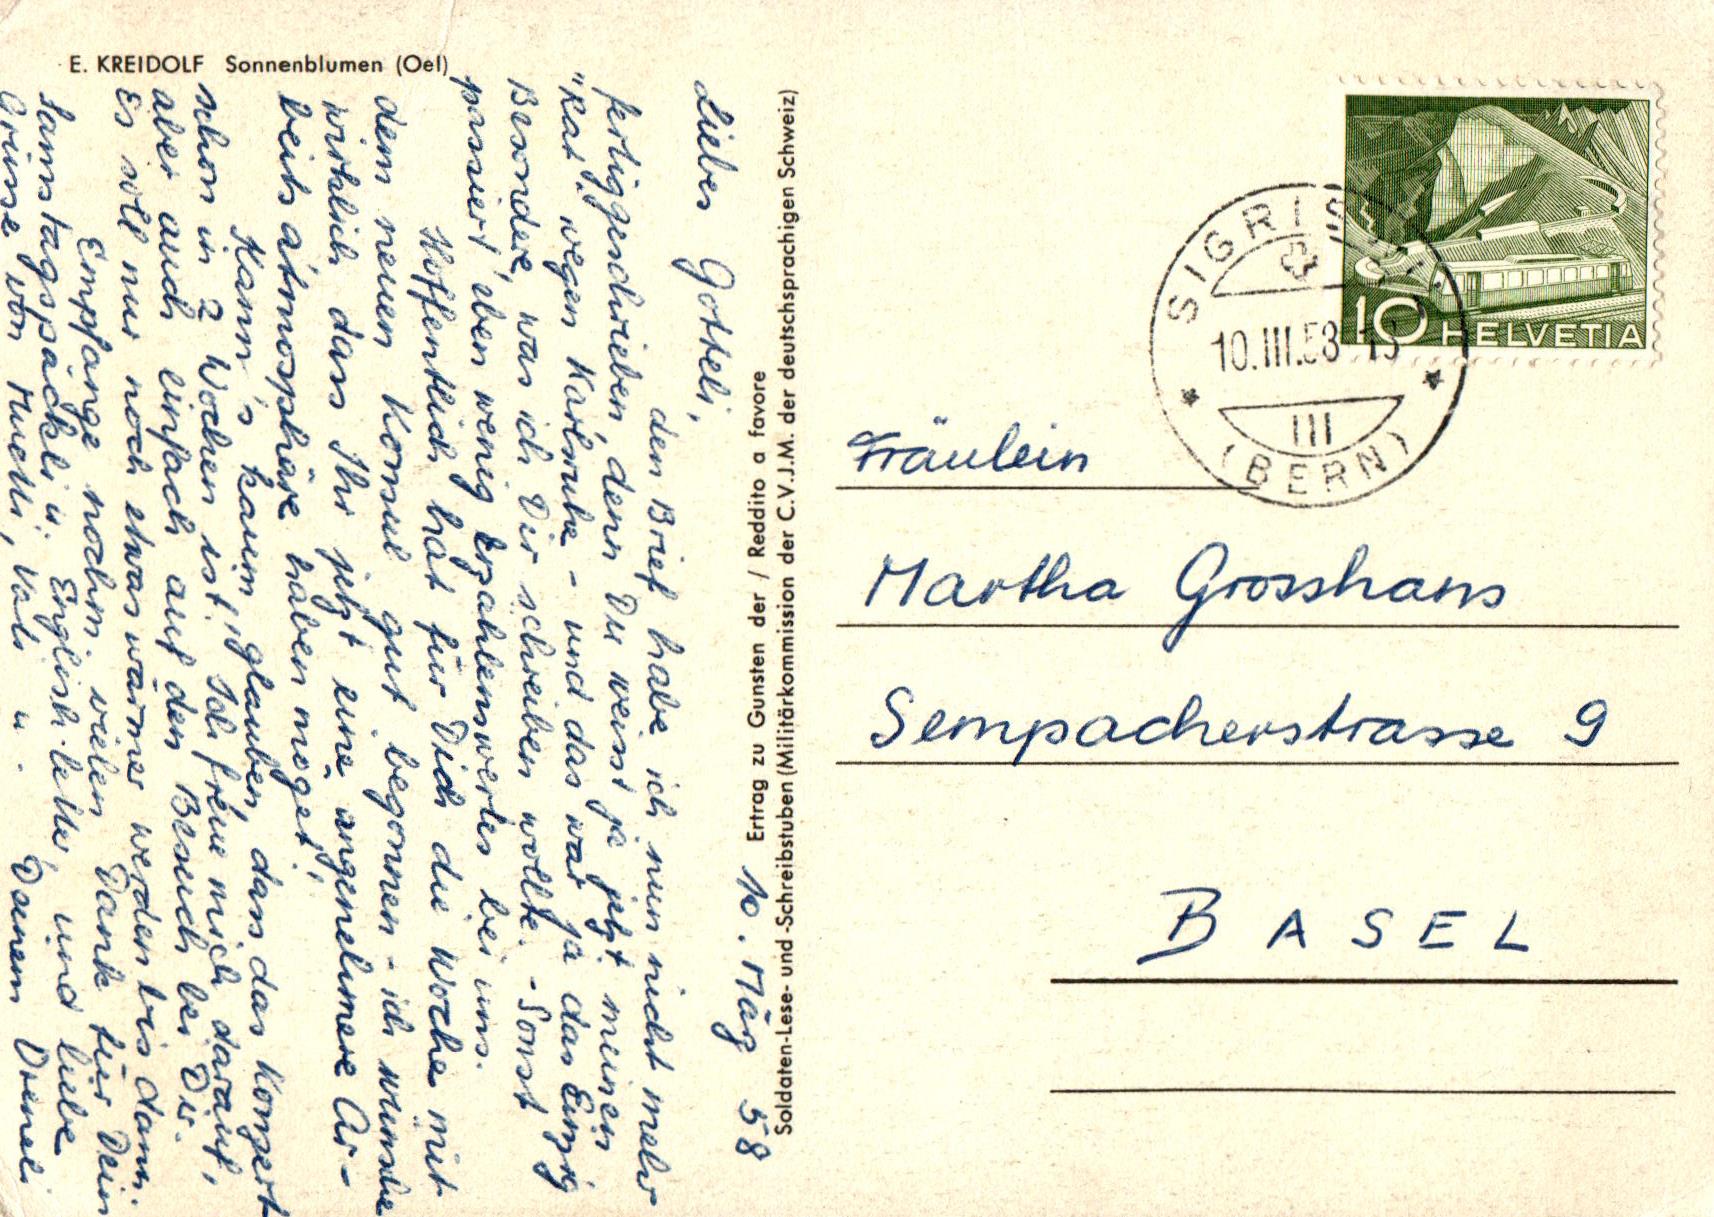 E. KREIDOLF Sonnenblumen (Oel)
10. März 58
Liebes Gotteli,
den Brief habe ich nun nicht mehr
fertiggeschrieben, denn Du weisst ja jetzt meinen
"Rat" wegen Karlsruhe - und das war ja das Einzig
Besondere, was ich Dir schreiben wollte. - Sonst
passiert eben wenig Erzählenswertes bei uns.
Hoffentlich hat für Dich die Woche mit
dem neuen Konsul gut begonnen - ich wünsche
wirklich dass Ihr jetzt eine angenehmere Ar-
beitsatmosphäre haben möget!
Kann's kaum glauben, dass das Konzert
schon in 2 Wochen ist! Ich freue mich darauf,
aber auch einfach auf den Besuch bei Dir.
Es soll nur noch etwas wärmer werden bis dann.
Empfange nochm. vielen Dank für Dein
Samstagspäckli u. Englisch-hefte, und liebe
Grüsse von Muetti, Vati u. Deinem Vreneli
Ertrag zu Gunsten der / Reddito a favore
Soldaten-Lese- und -Schreibstuben (Militärkommission der C.V.J.M. der deutschsprachigen Schweiz)
10 HELVETIA
SIGRISWIL
10.III.58-19
III
(BERN)
Fräulein
Martha Grosshans
Sempacherstrasse 9
BASEL